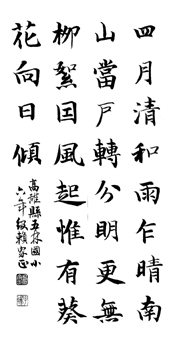 四月清和雨乍晴南
山當戶轉分明更無
柳絮因風起惟有葵
花向日傾
高雄縣五林國小
六年級賴家正